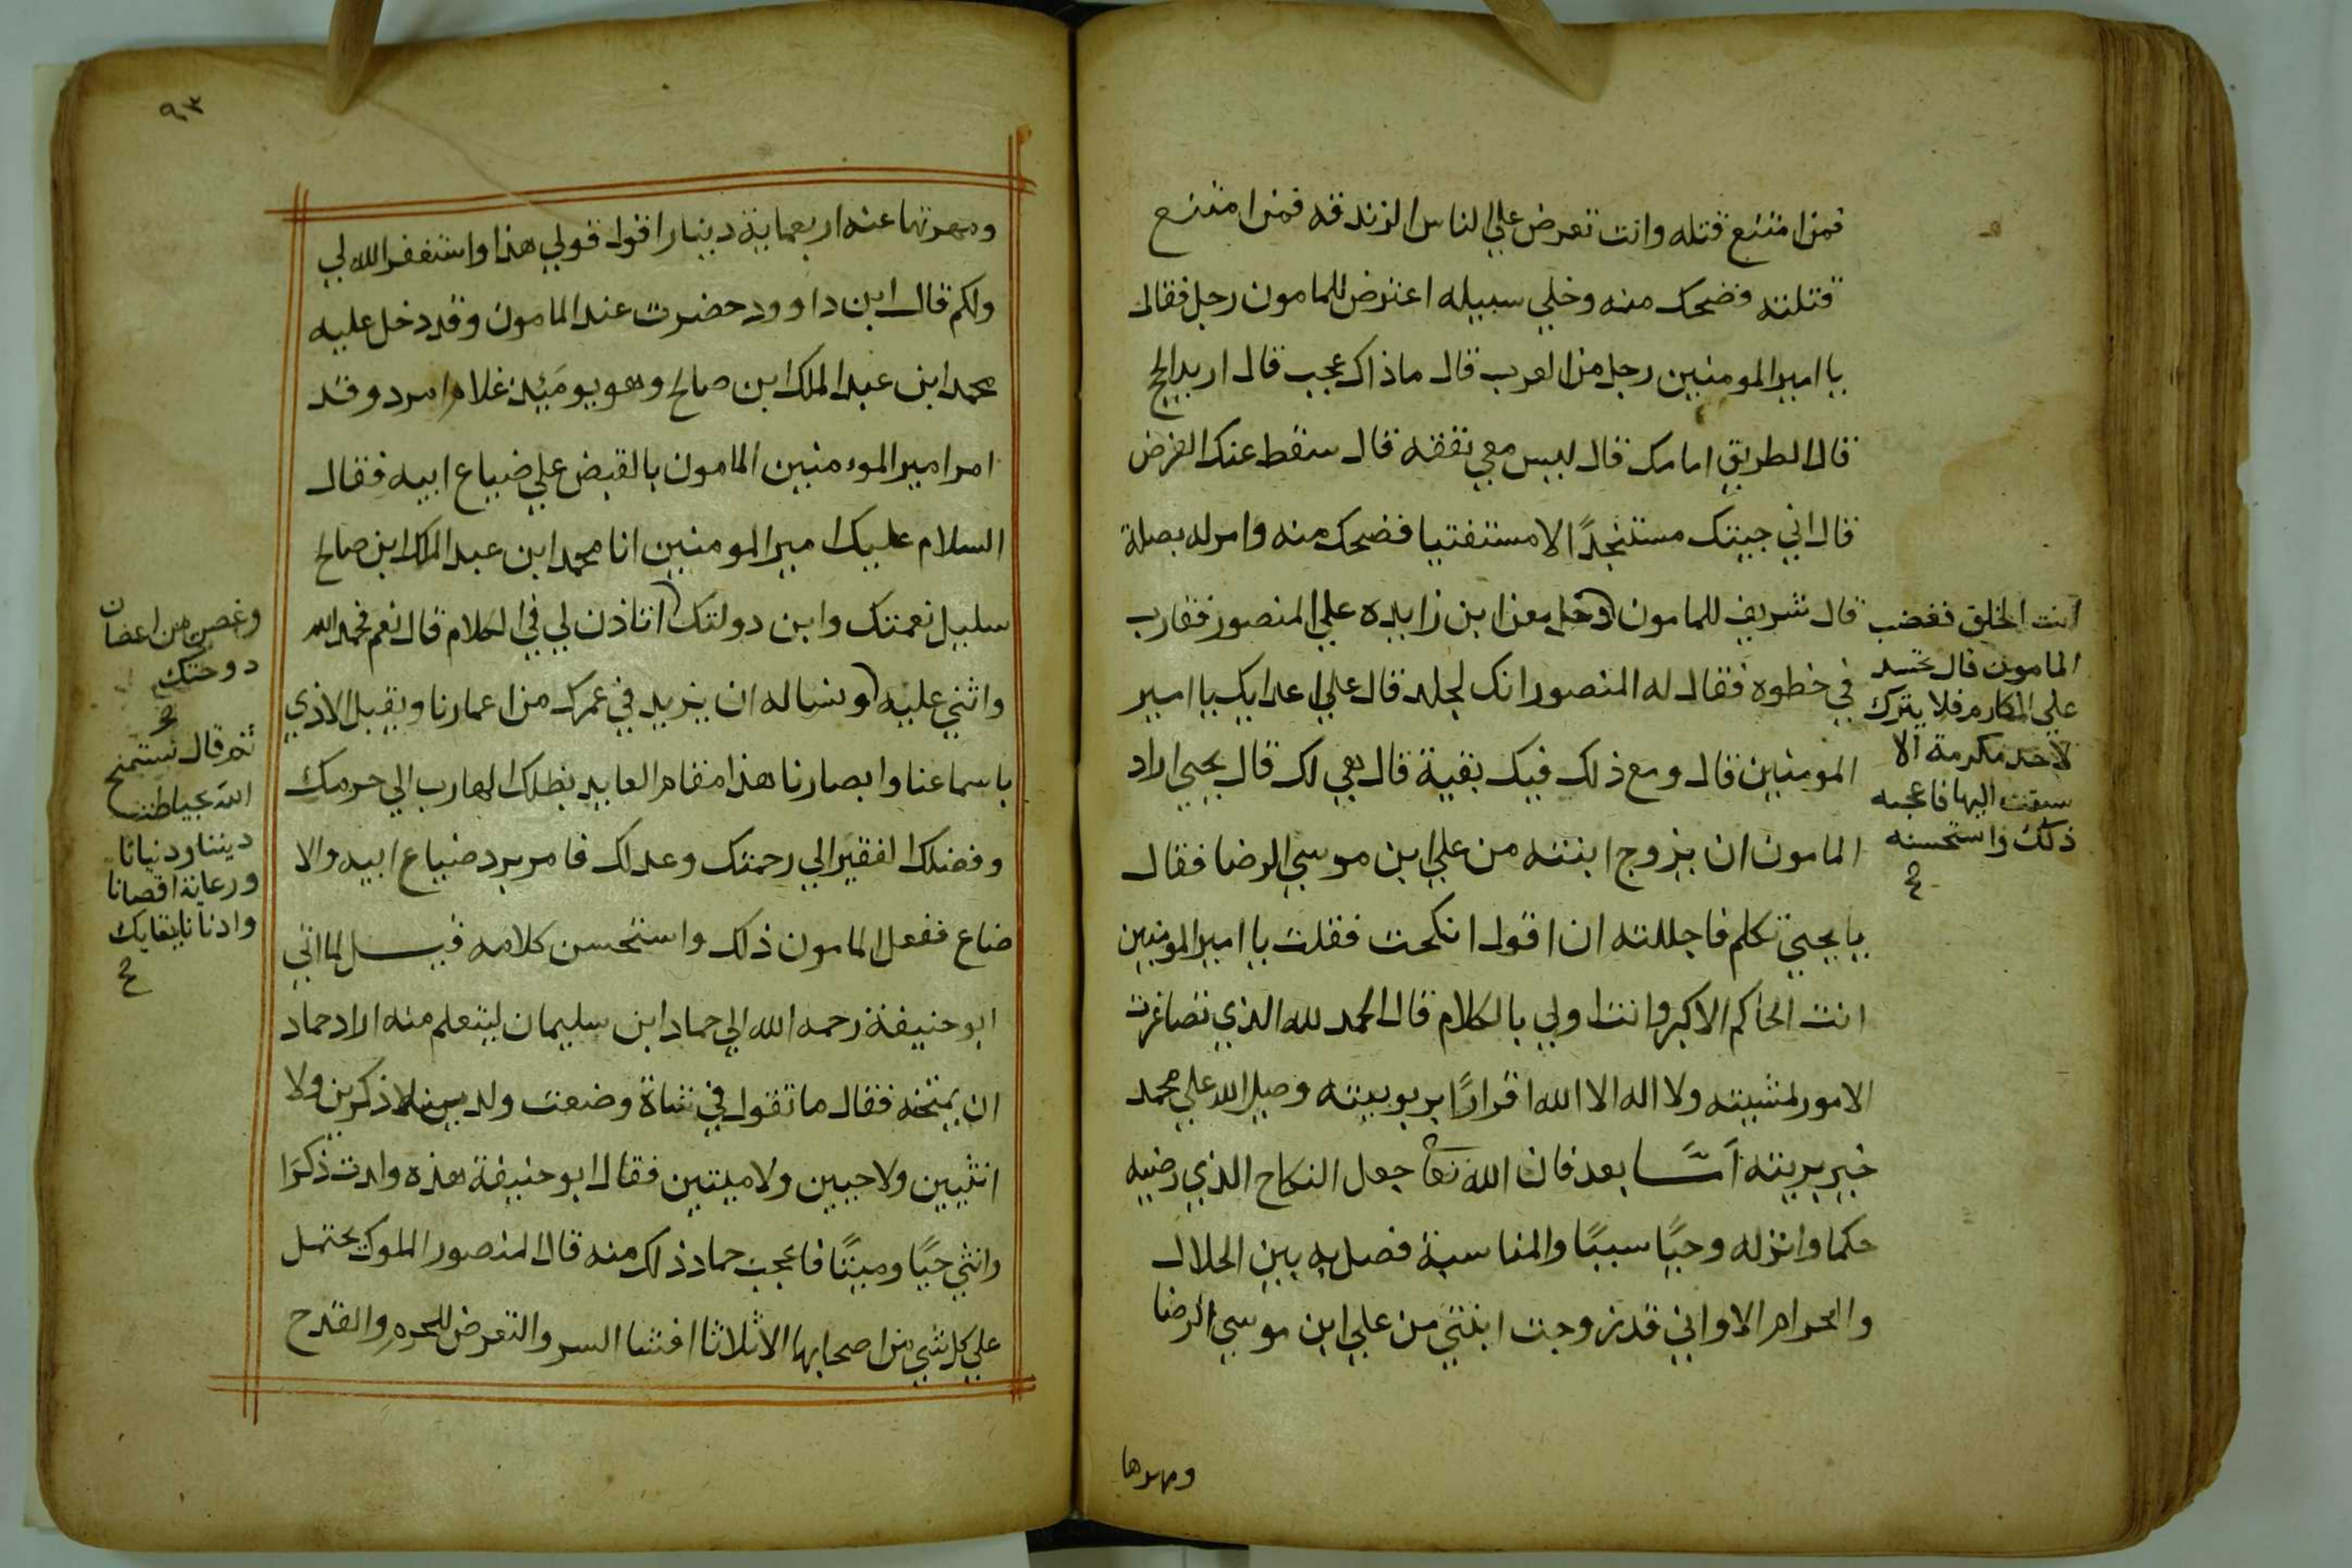 فمن امتنع قتله وانت تعرض علي الناس الزندقه فمن امتنع
قتلته فضحك منه وخلي سبيله اعترض للمامون رجل فقال
يا امير المومنين رجل من العرب قال ما ذاك عجب قال اريد الحج
قال الطريق امامك قال ليس معي نفقه قال سقط عنك الفرض
قال اني جيتك مستنجدًا لا مستفتيا فضحك منه وامر له بصلة
قال شريف للمامون دخل معن ابن زايده علي المنصور فقارب
في خطوه فقال له المنصور انك لجلد قال علي اعدايك يا امير
المومنين قال ومع ذلك فيك بقية قال هي لك قال يحيي اراد
المامون ان يزوج ابنته من علي ابن موسي الرضا فقال
يا يحيي تكلم فاجللته ان اقول انكحت فقلت يا امير المومنين
انت الحاكم الاكبر وانت اولي بالكلام قال الحمد لله الذي تصاغرت
الامور لمشيته ولا اله الا الله اقرارًا بربوبيته وصلي الله علي محمد
خير بريته امَّا بعد فان الله تعا جعل النكاح الذي رضيه
حكما وانزله وحيًا سببًا والمناسبة فصل به بين الحلال
والحرام الا واني قد زوجت ابنتي من علي ابن موسي الرضا
ومهرها
انت الخلق فغضب
المامون قال تحسد
علي المكارم فلا يترك
لاحد مكرمة الا
سبقت اليها فاعجبه
ذلك واستحسنه
٩٣
ومهرتها عنه اربعماية دينارا اقول قولي هذا واستغفر الله لي
ولكم قال ابن داوود حضرت عند المامون وقد دخل عليه
محمد ابن عبد الملك ابن صالح وهو يوميئذ غلام امرد وقد
امر امير المومنين المامون بالقبض علي ضياع ابيه فقال
السلام عليك امير المومنين انا محمد ابن عبد الملك ابن صالح
سليل نعمتك وابن دولتك اتاذن لي في الكلام قال نعم فحمد الله
واثني عليه ونساله ان يزيد في عمرك من اعمارنا ويقبل الاذي
باسماعنا وابصارنا هذا مقام العايد بظلك الهارب الي حرمك
وفضلك الفقير الي رحمتك وعدلك فامر برد ضياع ابيه والا
ضاع ففعل المامون ذلك واستحسن كلامه قيل لما اتي
ابو حنيفة رحمه الله الي حماد ابن سليمان ليتعلم منه اراد حماد
ان يمتحنه فقال ما تقول في شاة وضعت ولدين لا ذكرين ولا
انثيين ولا حيين ولا ميتين فقال ابو حنيفة هذه ولدت ذكرًا
وانثي حيًا وميتًا فاعجب حماد ذلك منه قال المنصور الملوك تحتمل
علي كل شي من اصحابها الا ثلاثا افشا السر والتعرض للحرم والقدح
وغصن من اغصان
دوحتك
ثم قال نستمنح
الله بحياطت
ديننا ودنيانا
ورعاية اقصانا
وادنانا ببقايك